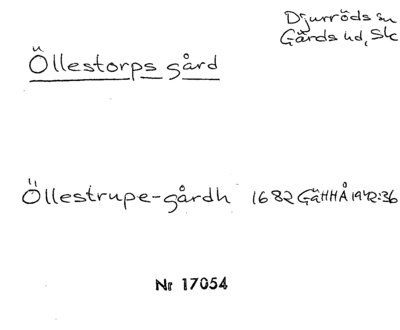 Djurröds sn
Gärds hd, Sk
Öllestorps gård
Öllestrupe-gårdh 1682 GäHHÅ 1942:36
Nr 17054